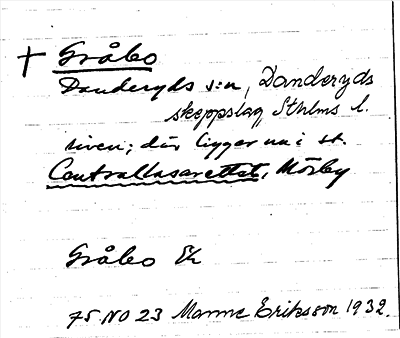 † Gråbo
Danderyds s:n, Danderyds
skeppslag, Sthlms l.
riven; där ligger nu i st.
Centrallasarettet, Mörby
Gråbo Ek
75 NO 23 Manne Eriksson 1932.